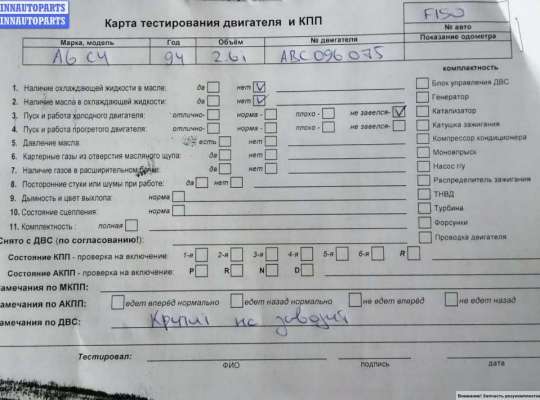 INNAUTOPARTS
INNAUTOPARTS
Карта тестирования двигателя и КПП
F150
№ авто
Показание одометра
Марка, модель Год Объём № двигателя
A6 C4 94 2.6i ABC 096075
комплектность
1. Наличие охлаждающей жидкости в масле: да нет V
2. Наличие масла в охлаждающей жидкости: да нет V
3. Пуск и работа холодного двигателя: отлично- норма - плохо - не завелся- V
4. Пуск и работа прогретого двигателя: отлично- норма - плохо - не завелся-
5. Давление масла: есть нет
6. Картерные газы из отверстия масляного щупа: да нет
7. Наличие газов в расширительном бачке: да нет
8. Посторонние стуки или шумы при работе: да нет
9. Дымность и цвет выхлопа: норма
10. Состояние сцепления: норма
11. Комплектность : полная
Блок управления ДВС
Генератор
Катализатор
Катушка зажигания
Компрессор кондиционера
Моновпрыск
Насос гу
Распределитель зажигания
ТНВД
Турбина
Форсунки
Проводка двигателя
Снято с ДВС (по согласованию!):
Состояние КПП - проверка на включение: 1-я 2-я 3-я 4-я 5-я 6-я R
Состояние АКПП - проверка на включение: P R N D
амечания по МКПП:
амечания по АКПП: едет вперёд нормально едет назад нормально не едет вперёд не едет назад
амечания по ДВС: Крутил не заводил
Тестировал:
ФИО подпись дата
Внимание! Запчасть укомплектов